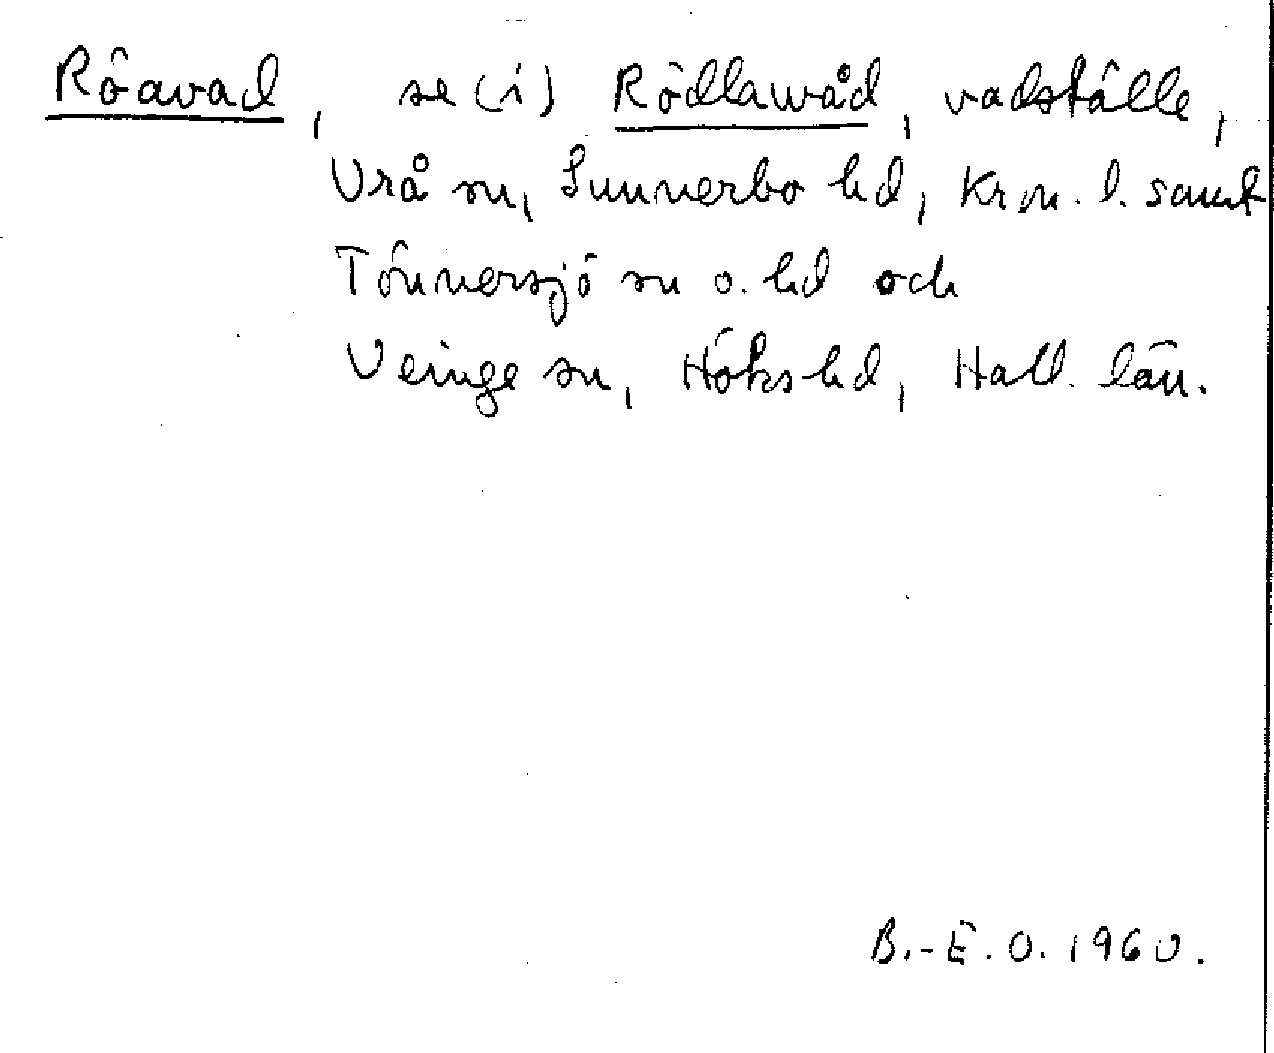 Röavad, se (i) Rödlawåd, vadställe,
Vrå sn, Sunnerbo hd, Kron. l. samt
Tönnersjö sn o. hd och
Veinge sn, Höks hd, Hall. län.
B.-E. O. 1960.